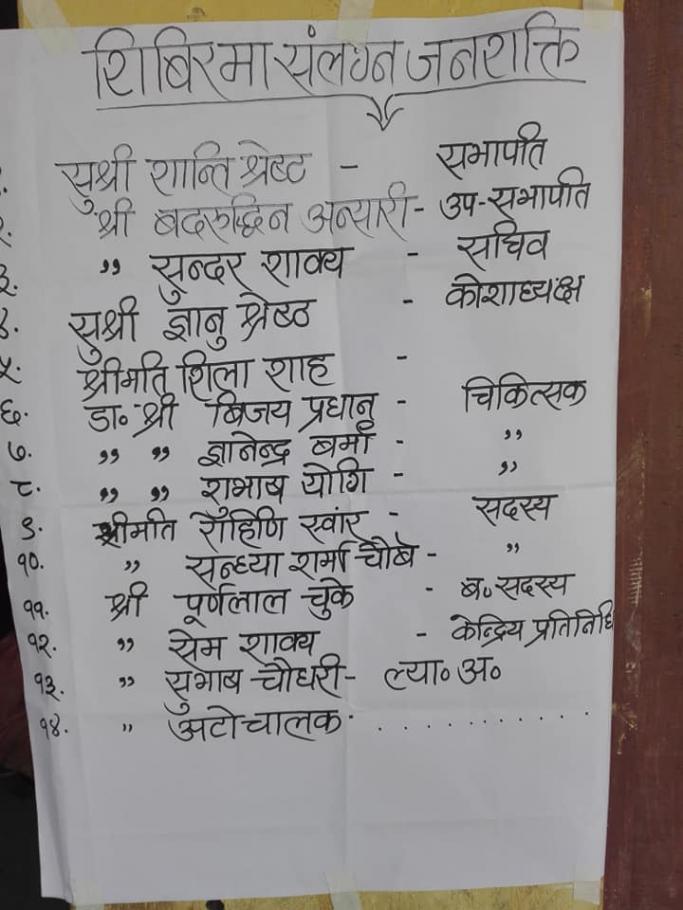 शिबिरमा संलग्न जनशक्ति
१. सुश्री शान्ति श्रेष्ठ - सभापति
२. श्री बदरुद्धिन अन्सारी - उप-सभापति
३. " सुन्दर शाक्य - सचिव
४. सुश्री ज्ञानु श्रेष्ठ - कोशाध्यक्ष
५. श्रीमति शिला शाह -
६. डा० श्री बिजय प्रधान - चिकित्सक
७. " " ज्ञानेन्द्र बर्मा - "
८. " " शुभाष योगि - "
९. श्रीमति रोहिणि स्वार - सदस्य
१०. " सन्ध्या शर्मा चौबे - "
११. श्री पूर्णलाल चुके - ब० सदस्य
१२. " सेम शाक्य - केन्द्रिय प्रतिनिधि
१३. " सुभाष चौधरी - ल्या० अ०
१४. " अटोचालक . . . . . . . . . . . .